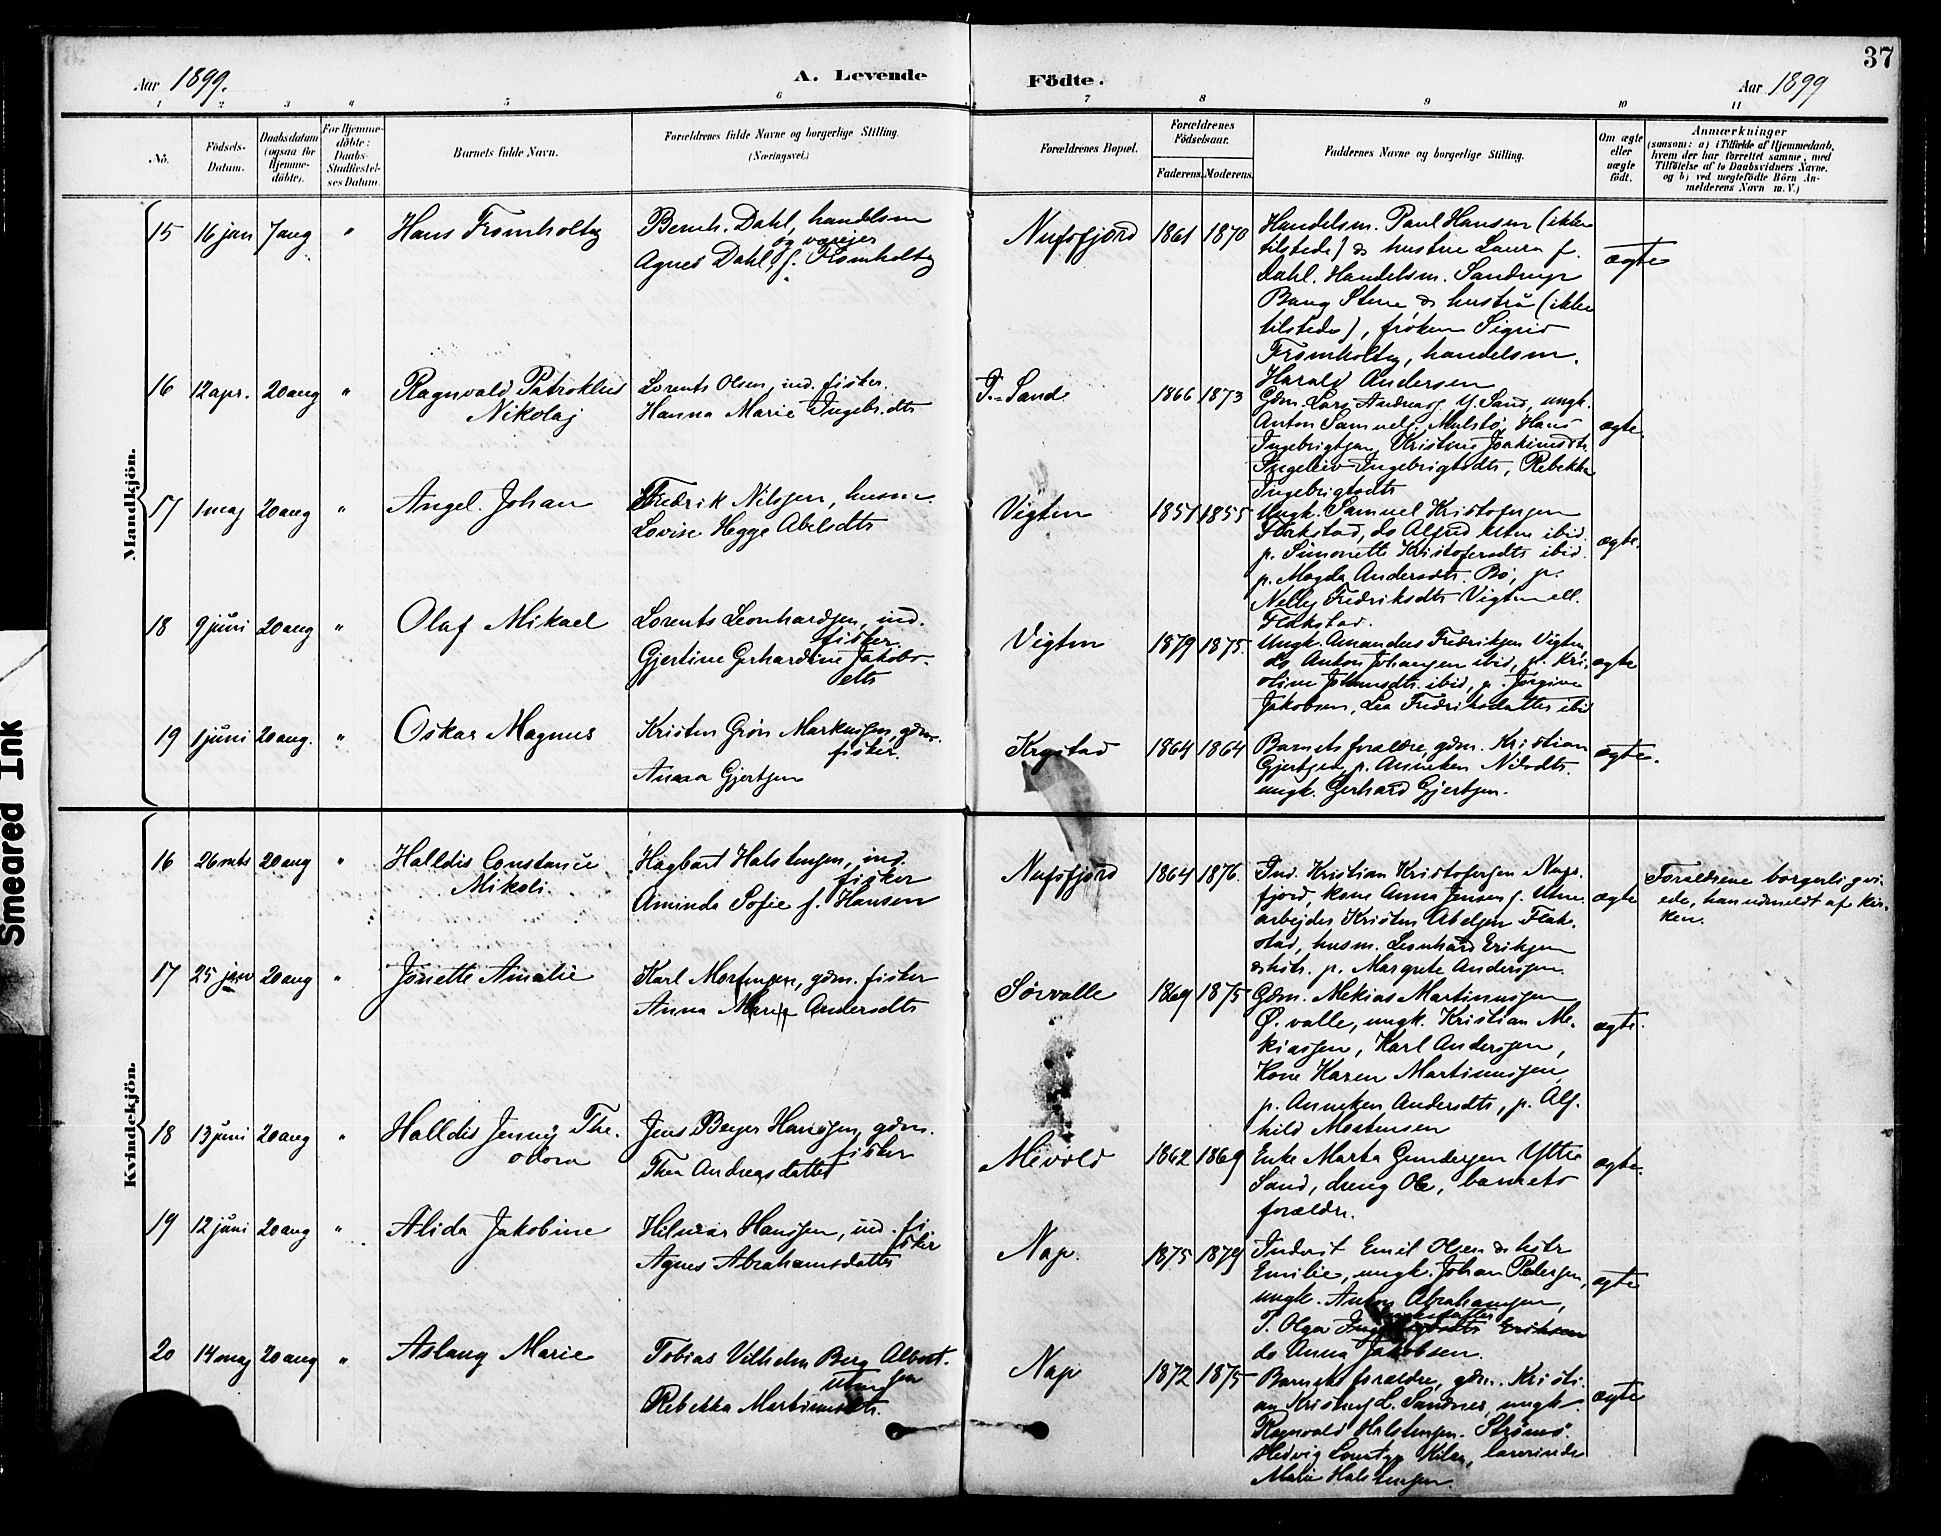 37
Aar 1899.
A. Levende
Födte.
Aar 1899
1 2 3 4 5 6 7 8 9 10 11
No.
Födsels-
Datum.
Daabsdatum
(ogsaa for
Hjemme-
döbte).
For Hjemme-
döbte:
Daabs-
Stadfæstel-
ses Datum.
Barnets fulde Navn.
Forældrenes fulde Navne og borgerlige Stilling.
(Næringsvei.)
Forældrenes Bopæl.
Forældrenes
Födselsaar.
Faderens. Moderens.
Faddernes Navne og borgerlige Stilling.
Om ægte
eller
uægte
födt.
Anmærkninger
(saasom: a) i Tilfælde af Hjemmedaab,
hvem der har forrettet samme, med
Tilføielse af to Daabsvidners Navne.
og b) ved uægtefödte Börn An-
melderens Navn m. V.)
Mandkjön.
15 16 jan 7 aug " Hans Fromholtz
Bernh. Dahl, handelsm
og væejer
Agnes Dahl f. Fromholtz
Nufsfjord 1861 1870
Handelsm. Paul Hansen (ikke
tilstede) & hustru Laura f.
Dahl. Handelsm. Sandrup
Bang Stene & hustru (ikke
tilstede), frøken Sigrid
Fromholtz, handelsm.
Harald Andersen
ægte
16 12 apr. 20 aug " Ragnvald Patroklus
Nikolaj
Lorents Olsen, ind. fisker.
Hanna Marie Ingebr.dtr
Y. Sand 1866 1873
Gdm. Lars Andreas. Y. Sand, ungk.
Anton Samuels. Mulstø, Hans
Ingebrigtsen, Kristine Joakimsdtr
Ingeleiv Ingebrigtsdtr, Rebekka
Ingebrigtsdtr
ægte.
17 1 maj 20 aug " Angel. Johan
Fredrik Nilssen, husm.
Lovise Hegge Abelsdtr
Vigten 1851 1855
Ungk. Samuel Kristofersen
Flakstad, do Alfred Utne ibid.
p. Simonette Kristofersdtr ibid.
p. Magda Andersdtr. Bø, p.
Nelly Fredriksdtr Vigten ell.
Flakstad.
ægte.
18 9 juni 20 aug " Olaf Mikael
Lorents Leonhardsen, ind.
fisker.
Gjertine Gerhardine Jakobs-
dtr
Vigten 1879 1875.
Ungk. Amandus Fredriksen Vigten,
do Anton Johansen ibid, p. Kri-
oline Johansdtr. ibid, p. Jørgine
Jakobsen, Lea Fredriksdatter ibid
ægte
19 1 juni 20 aug. " Oskar Magnus
Kristen Grøn Markussen, gdm.
fisker.
Anna Gjertsen
Krystad 1864 1864
Barnets forældre, gdm. Kristian
Gjertsen, p. Anneken Nilsdtr.
ungk. Gerhard Gjertsen.
ægte.
Kvindekjön.
16 26 mts 20 aug " Halldis Constance
Mikoli
Hagbart Halstensen, ind.
fisker
Aminda Sofie f. Hansen
Nufsfjord 1864 1876.
Ind. Kristian Kristofersen Naps-
fjord, kone Anna Jensen f. Utne
arbejder Kristen Abelsen Flak-
stad, husm. Leonhard Eriksen
& hstr. p. Margrete Anderssen.
ægte
Forældrene borgerlig vi-
ede, han udmeldt af kir-
ken.
17 25 jan 20 aug " Jonette Amalie
Karl Mortensen, gdm. fisker
Anna Maria Andersdtr
Sørvalle 1869 1875
Gdm. Mekias Martinussen
Ø. valle, ungk. Kristian Me-
kiassen, Karl Anderssen,
Kone Karen Martinussen,
p. Anneken Andersdtr, p. Alf-
hild Mortensen
ægte.
18 13 juni 20 aug " Halldis Jenny The-
odora
Jens Beyer Hanssen, gdm.
fisker
Thea Andreasdatter
Mevold 1862 1869
Enke Marta Gundersen Ytter
Sand, dreng Ole, barnets
forældre.
ægte.
19 12 juni 20 aug " Alida Jakobine
Hilmar Hanssen, ind. fi
sker
Agnes Abrahamsdatter
Nap. 1875 1879
Indvst Emil Olsen & hstr
Emilie, ungk. Johan Pedersen,
ungk. Anton Abrahamsen,
P. Olga Eriksen
do Anna Jakobsen.
ægte
20 14 maj 20 aug " Aslaug Marie
Tobias Vilhelm Berg Albert-
sen
Rebekka Martinusdtr.
Nap 1872 1875
Barnets forældre, gdm. Kristi-
an Kristens. L. Sandnes, ungk.
Ragnvald Halstensen. Strømø.
Hedvig Lorentzen Kilan, lærerinde
Malie Halstensen.
ægte
Smeared Ink